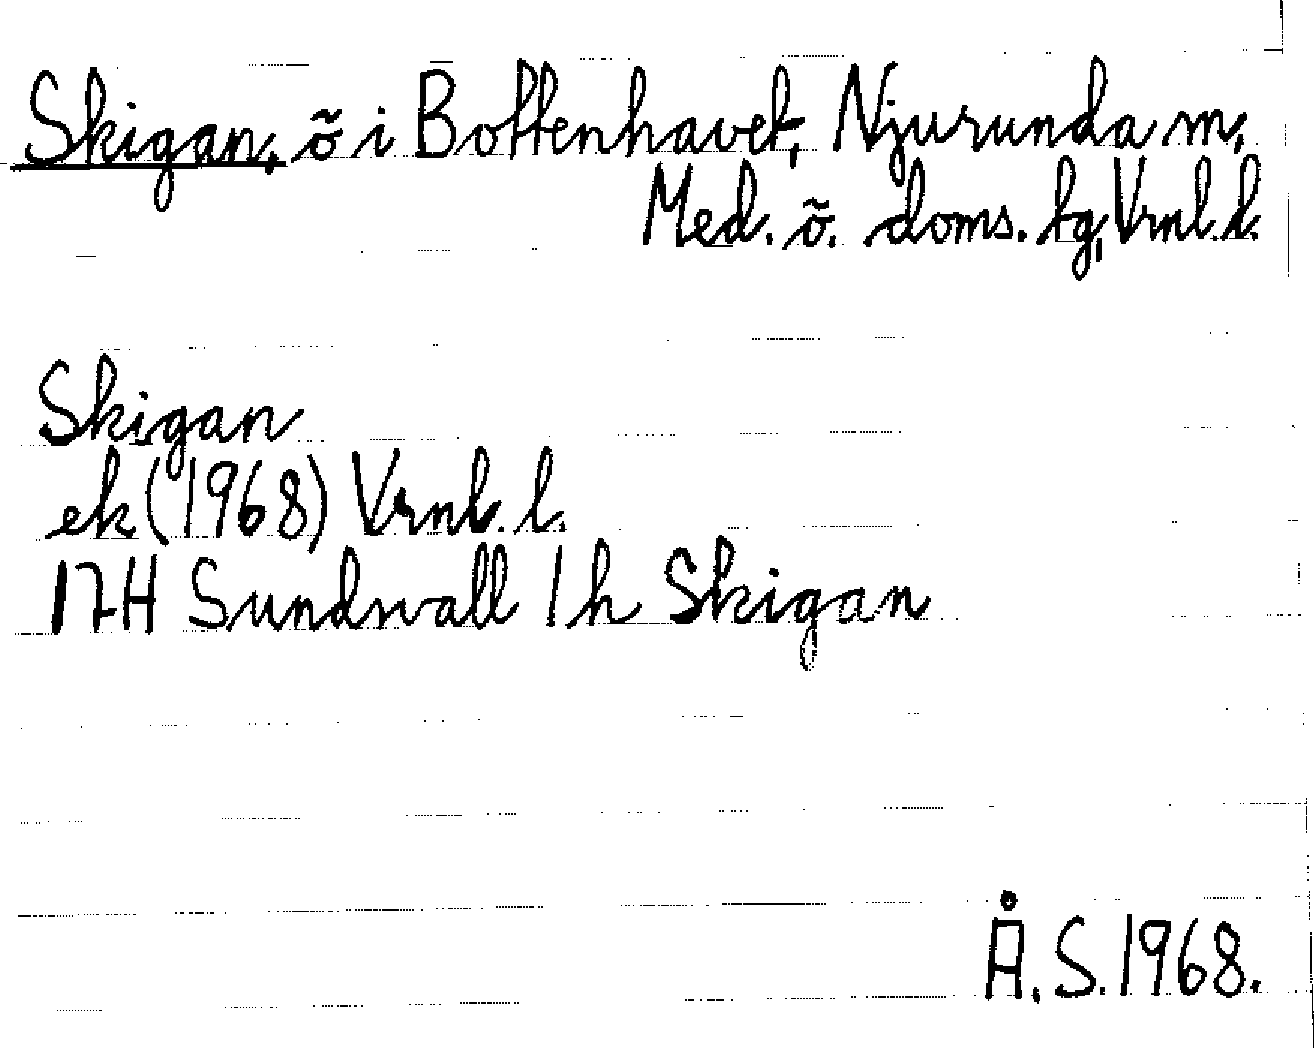 Skigan, ö i Bottenhavet, Njurunda m,
Med. ö. doms. tg, Vrnl. l.
Skigan
ek (1968) Vrnl. l.
17H Sundsvall 1h Skigan
Å. S. 1968.